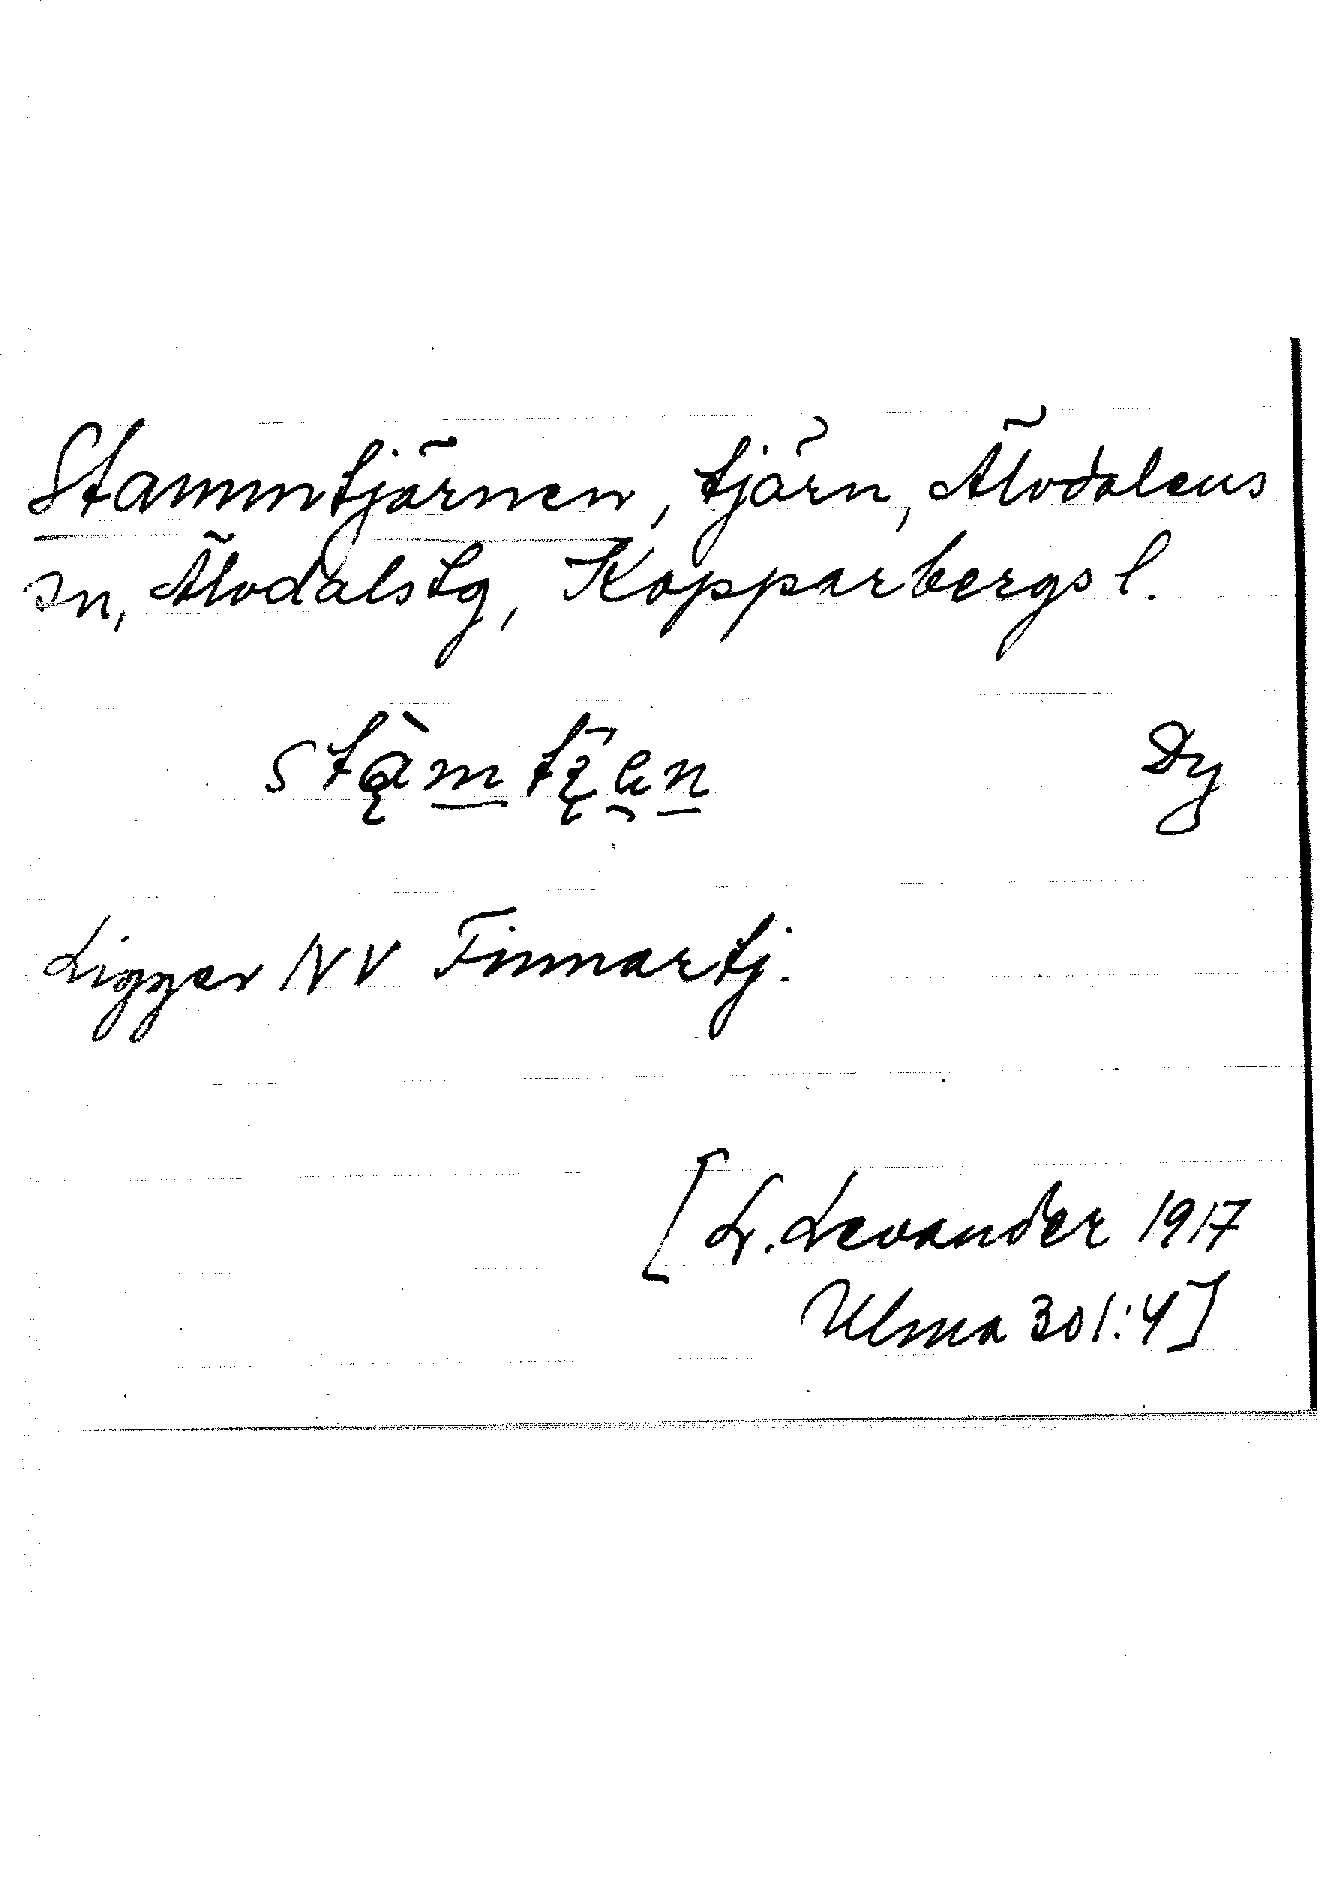 Stammtjärnen, tjärn, Älvdalens
sn, Älvdalstg, Kopparbergs l.
Dy
Ligger NV Finnartj.
[L. Levander 1917
Ulma 301:4]